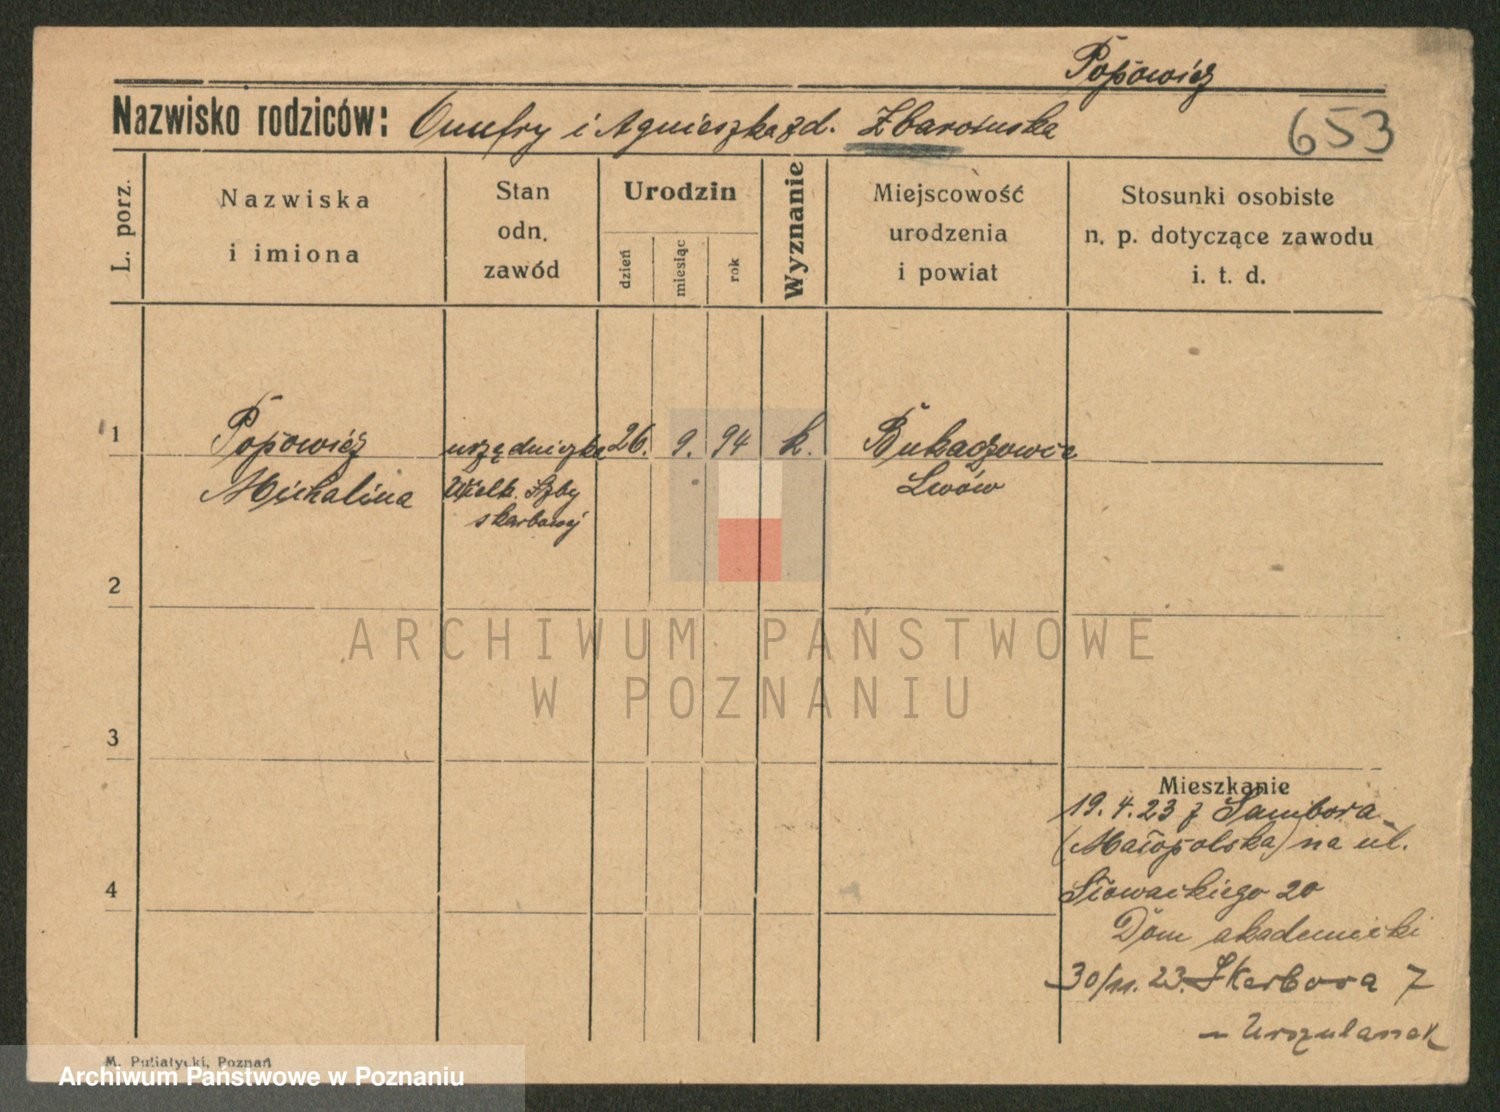 Popowicz
Nazwisko rodziców: Onufry i Agnieszka zd.
653
L. porz.
Nazwiska
i imiona
Stan
odn.
zawód
Urodzin
dzień
miesiąc
rok
Wyznanie
Miejscowość
urodzenia
i powiat
Stosunki osobiste
n. p. dotyczące zawodu
i. t. d.
1 Popowicz urzędniczka 26. 9. 94 k. Bukaczowce
Michalina Wielk. Izby Lwów
skarbowej
2
ARCHIWUM PAŃSTWOWE
W POZNANIU
3
Mieszkanie
19.4.23 z Sambora
(Małopolska) na ul.
4
Słowackiego 20
Dom akademicki
30/11. 23. Skarbowa 7
– Urszulanek
M. Putiatycki, Poznań
Archiwum Państwowe w Poznaniu